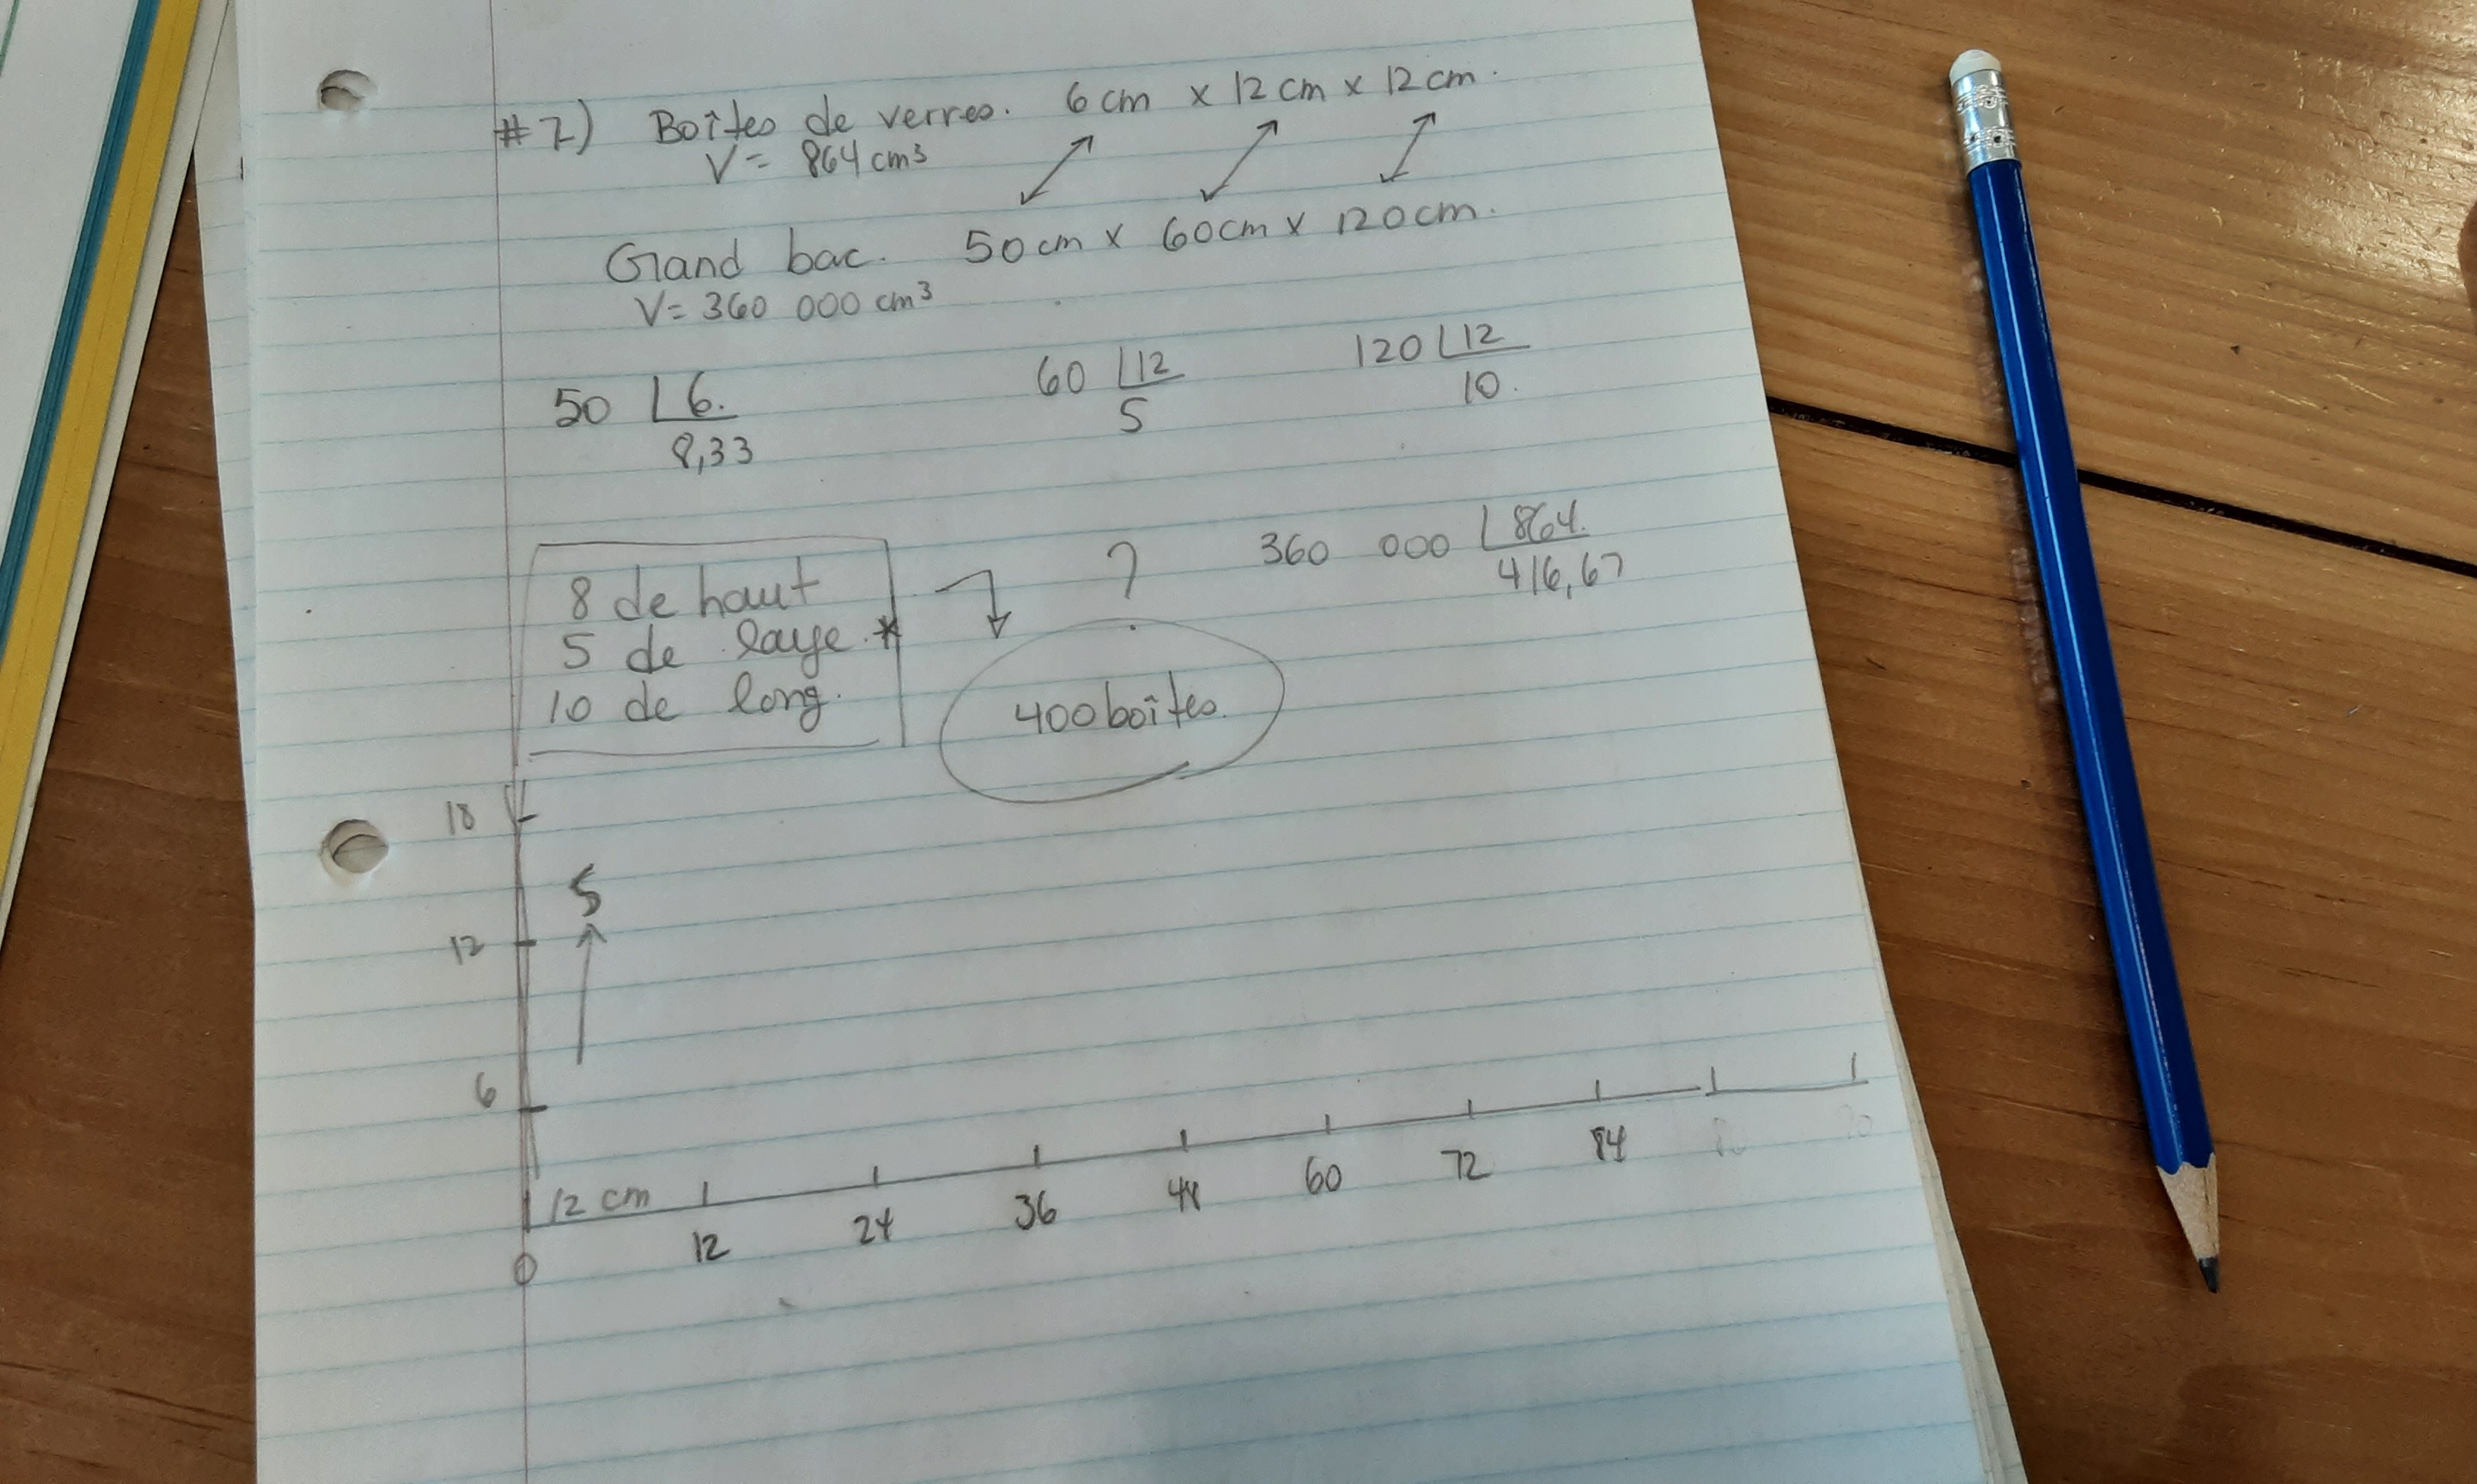 #2) Boîtes de verres. 6 cm x 12 cm x 12 cm.
V = 864 cm³
Grand bac. 50 cm x 60 cm x 120 cm.
V = 360 000 cm³
50 | 6.
8,33
60 | 12
5
120 | 12
10.
360 000 | 864.
416,67
8 de haut
5 de large *
10 de long.
?
400 boîtes.
18
5
12
6
12 cm
0 12 24 36 48 60 72 84